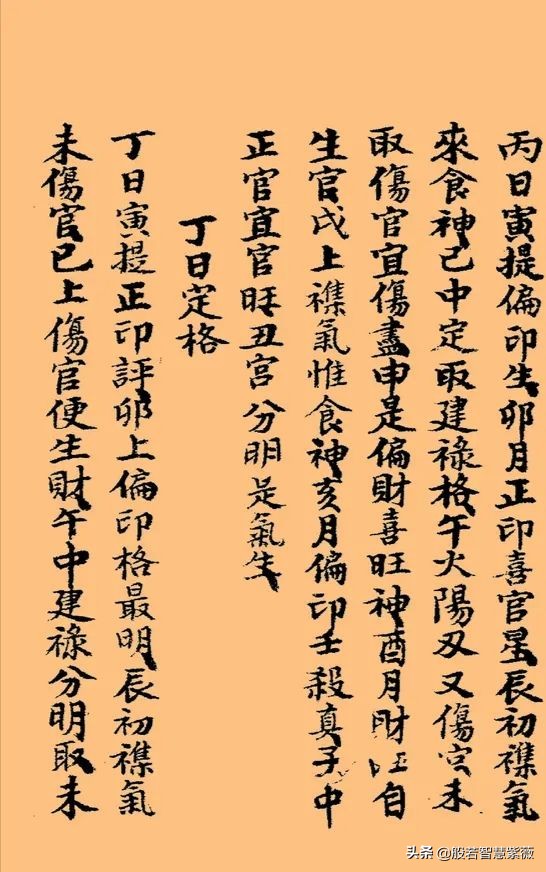 丙日寅提偏印生卯月正印喜官星辰初襍氣
來食神已中定取建祿格午火陽刃又傷官未
取傷官宜傷盡申是偏財喜旺神酉月財旺自
生官戌上襍氣惟食神亥月偏印壬殺真子中
正官宜官旺丑宮分明是氣生
丁日定格
丁日寅提正印評卯上偏印格最明辰初襍氣
未傷官已上傷官便生財午中建祿分明取未
头条 @般若智慧紫薇